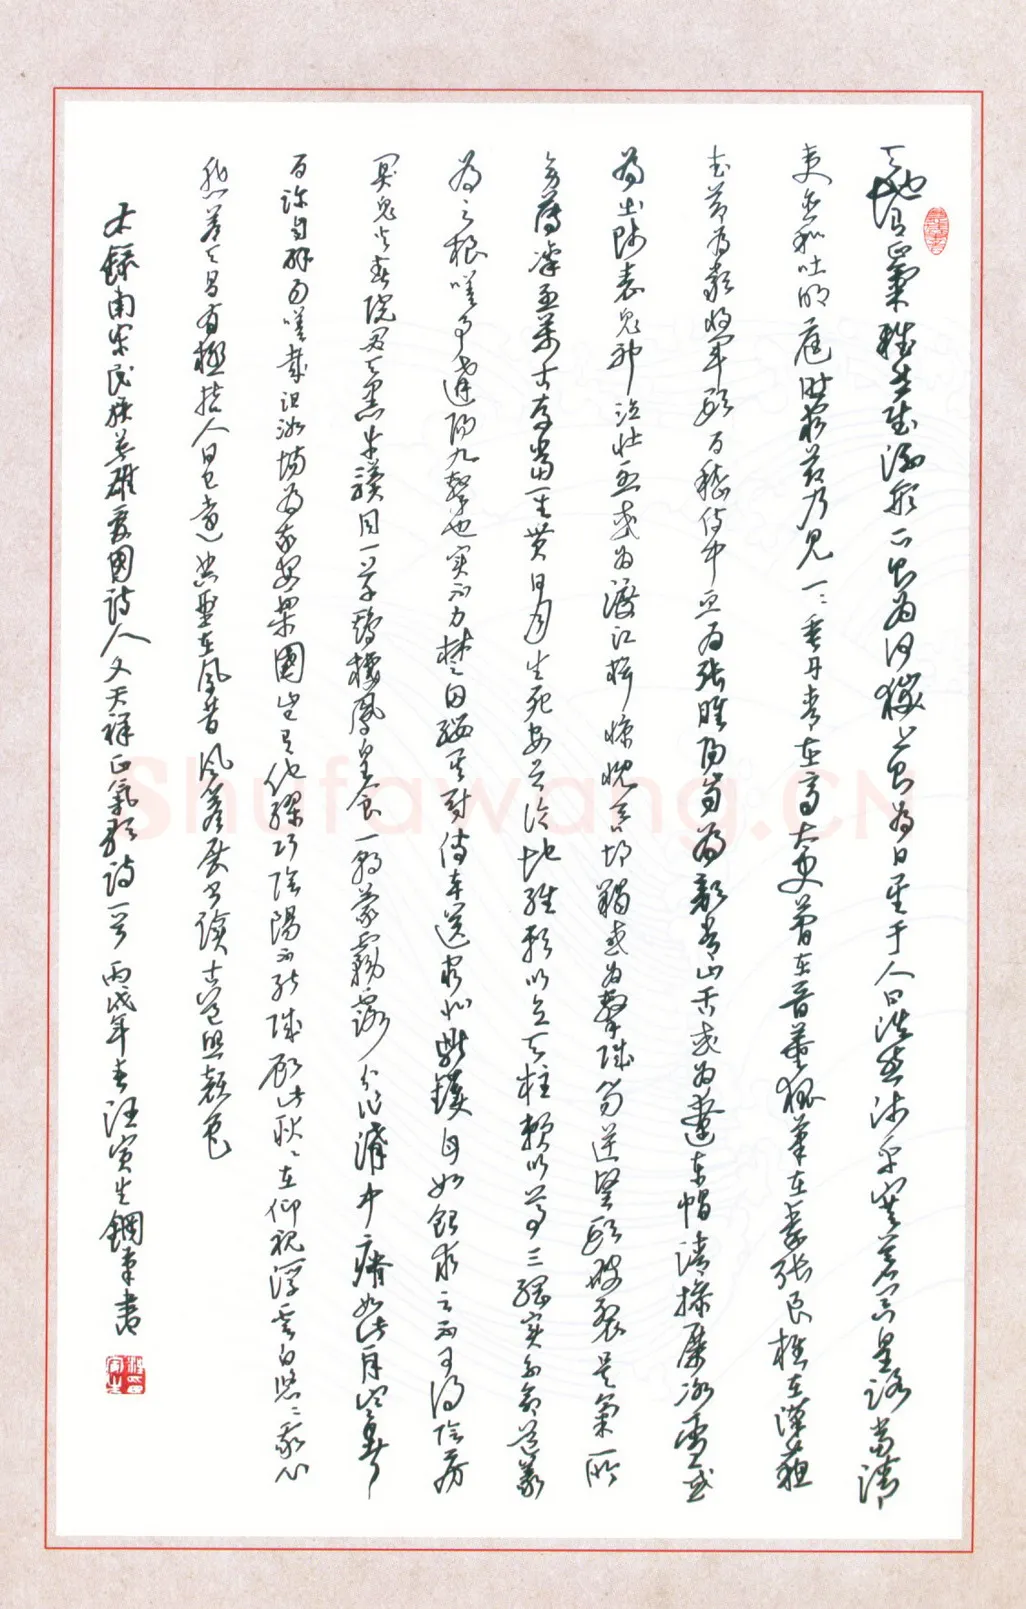 天地有正氣雜然賦流形下則為河嶽上則為日星于人曰浩然沛乎塞蒼冥皇路當清
夷含和吐明庭時窮節乃見一一垂丹青在齊太史簡在晉董狐筆在秦張良椎在漢蘇
武節為嚴將軍頭為嵇侍中血為張睢陽齒為顏常山舌或為遼東帽清操厲冰雪或
為出師表鬼神泣壯烈或為渡江楫慷慨吞胡羯或為擊賊笏逆豎頭破裂是氣所
旁薄凜烈萬古存當其貫日月生死安足論地維賴以立天柱賴以尊三綱實系命道義
為之根嗟予遘陽九隸也實不力楚囚纓其冠傳車送窮北鼎鑊甘如飴求之不可得陰房
闃鬼火春院閟天黑牛驥同一皁雞棲鳳凰食一朝蒙霧露分作溝中瘠如此再寒暑
百沴自辟易嗟哉沮洳場為我安樂國豈有他繆巧陰陽不能賊顧此耿耿在仰視浮雲白悠悠我心
悲蒼天曷有極哲人日已遠典型在夙昔風簷展書讀古道照顏色
右錄南宋民族英雄愛國詩人文天祥正氣歌詩一首 丙戌年春汪寅生鋼筆書
Shufawang.CN